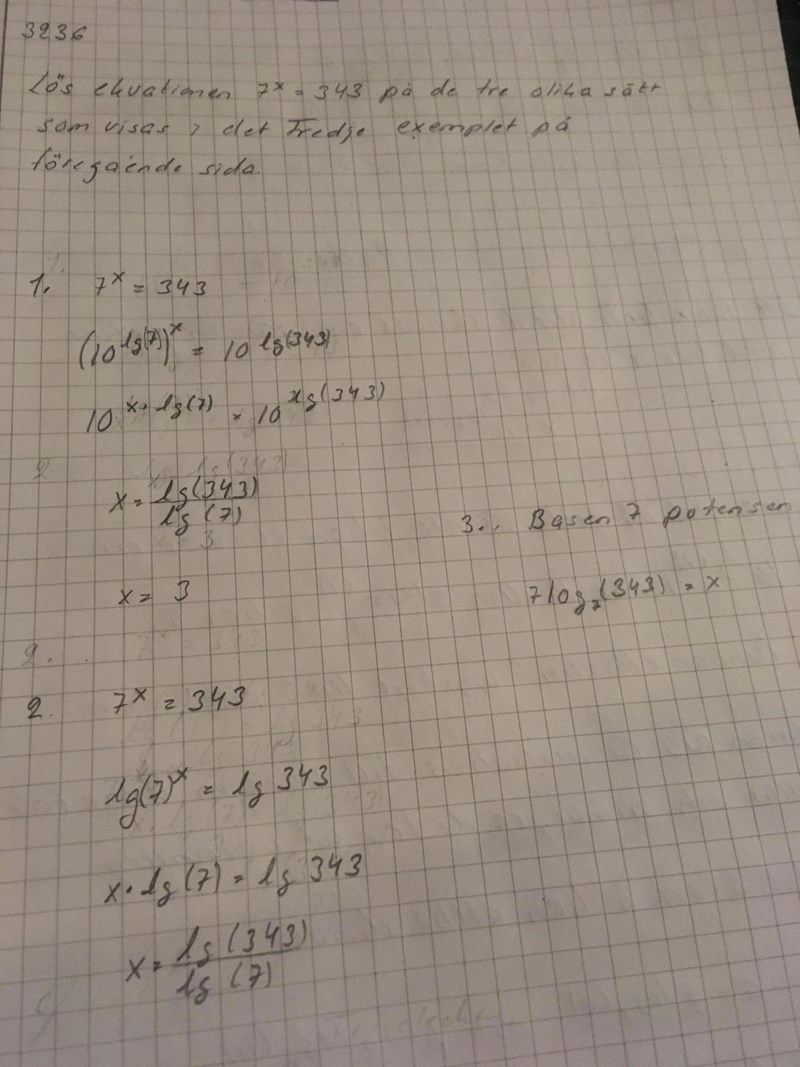 3236
Lös ekvationen 7ˣ = 343 på de tre olika sätt
som visas i det Tredje exemplet på
föregående sida.
1. 7ˣ = 343
(10^lg(7))^x = 10^lg(343)
10^x·lg(7) = 10^lg(343)
x = lg(343) / lg(7)
x = 3
3. Basen 7 potensen
7log₇(343) = x
2. 7ˣ = 343
lg(7)ˣ = lg 343
x · lg(7) = lg 343
x = lg(343) / lg(7)